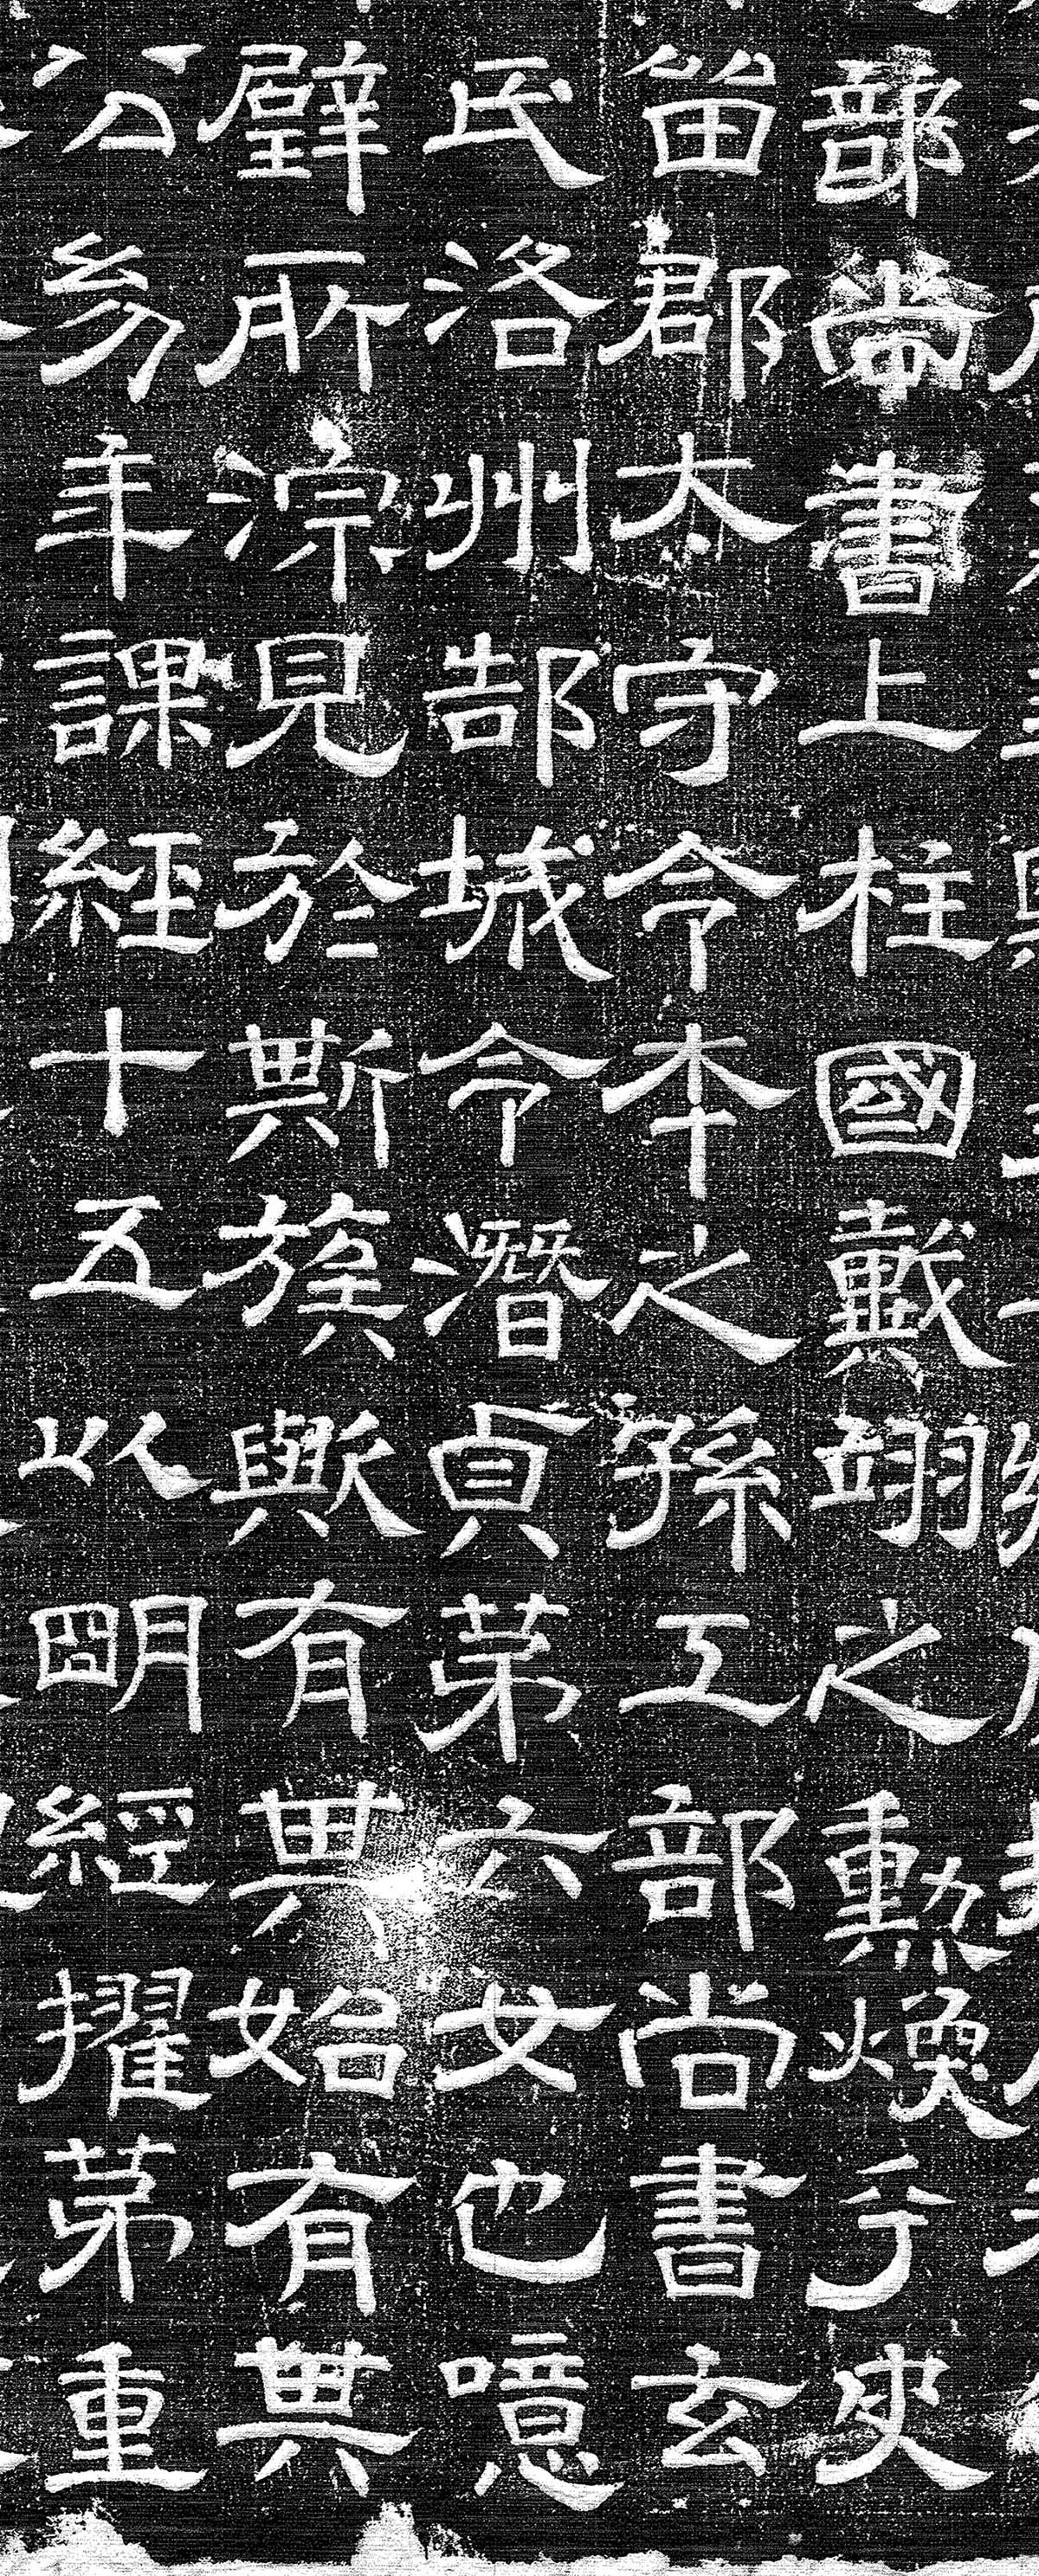 部尚書上柱國戴翊之勳煥乎史
甾郡太守令本之孫工部尚書玄
民洛州郜城令潛貞第六女也噫
璧所淙見於斯旗歟有其始有其
公幼年課經十五以明經擢第重